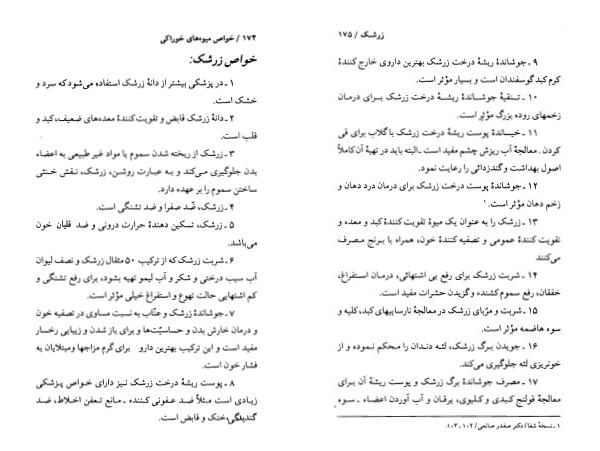 ۱۷۴ / خواص میوه‌های خوراکی
خواص زرشک:
۱ ـ در پزشکی بیشتر از دانهٔ زرشک استفاده می‌شود که سرد و
خشک است.
۲ ـ دانهٔ زرشک قابض و تقویت کنندهٔ معده‌های ضعیف، کبد و
قلب است.
۳ ـ زرشک از ریخته شدن سموم یا مواد غیر طبیعی به اعضاء
بدن جلوگیری می‌کند و به عبارت روشن، زرشک، نقش خنثی
ساختن سموم را بر عهده دارد.
۴ ـ زرشک، ضّد صفرا و ضد تشنگی است.
۵ ـ زرشک، تسکین دهندهٔ حرارت درونی و ضد قلیان خون
می‌باشد.
۶ ـ شربت زرشک که از ترکیب ۵۰ مثقال زرشک و نصف لیوان
آب سیب درختی و شکر و آب لیمو تهیه بشود، برای رفع تشنگی و
کم اشتهایی حالت تهوع و استفراغ خیلی مؤثر است.
۷ ـ جوشاندهٔ زرشک و عنّاب به نسبت مساوی در تصفیه خون
و درمان خارش بدن و حساسیّت‌ها و برای باز شدن و زیبایی رخسار
مفید است و این ترکیب بهترین دارو برای گرم مزاجها ومبتلایان به
فشار خون است.
۸ ـ پوست ریشهٔ درخت زرشک نیز دارای خواص پزشکی
زیادی است مثلاً ضد عفونی کننده ـ مانع تعفن اخلاط، ضد
گندیدگی، خنک و قابض است.
زرشک / ۱۷۵
۹ ـ جوشاندهٔ ریشهٔ درخت زرشک بهترین داروی خارج کنندهٔ
کرم کبد گوسفندان است و بسیار مؤثر است.
۱۰ ـ تنقیهٔ جوشاندهٔ ریشهٔ درخت زرشک برای درمان
زخمهای روده بزرگ مؤثر است.
۱۱ ـ خیساندهٔ پوست ریشهٔ درخت زرشک با گلاب برای قی
کردن. معالجهٔ آب ریزش چشم مفید است ـ البته باید در تهیهٔ آن کاملاً
اصول بهداشت و گندزدائی را رعایت نمود.
۱۲ ـ جوشاندهٔ پوست درخت زرشک برای درمان درد دهان و
زخم دهان مؤثر است.۱
۱۳ ـ زرشک را به عنوان یک میوهٔ تقویت کنندهٔ کبد و معده و
تقویت کنندهٔ عمومی و تصفیه کنندهٔ خون، همراه با برنج مصرف
می‌کنند
۱۴ ـ شربت زرشک برای رفع بی اشتهائی، درمان استفراغ،
خفقان، رفع سموم کشنده و گزیدن حشرات مفید است.
۱۵ ـ شربت و مربّای زرشک در معالجهٔ نارسایهای کبد، کلیه و
سوء هاضمه مؤثر است.
۱۶ ـ جویدن برگ زرشک، لثه دندان را محکم نموده و از
خونریزی لثه جلوگیری می‌کند.
۱۷ ـ مصرف جوشاندهٔ برگ زرشک و پوست ریشهٔ آن برای
معالجهٔ قولنج کبدی و کلیوی، یرقان و آب آوردن اعضاء ـ سوء
۱ ـ نسخهٔ شفا / دکتر صفدر صانعی / ۱۰۲ ـ ۱۰۳.